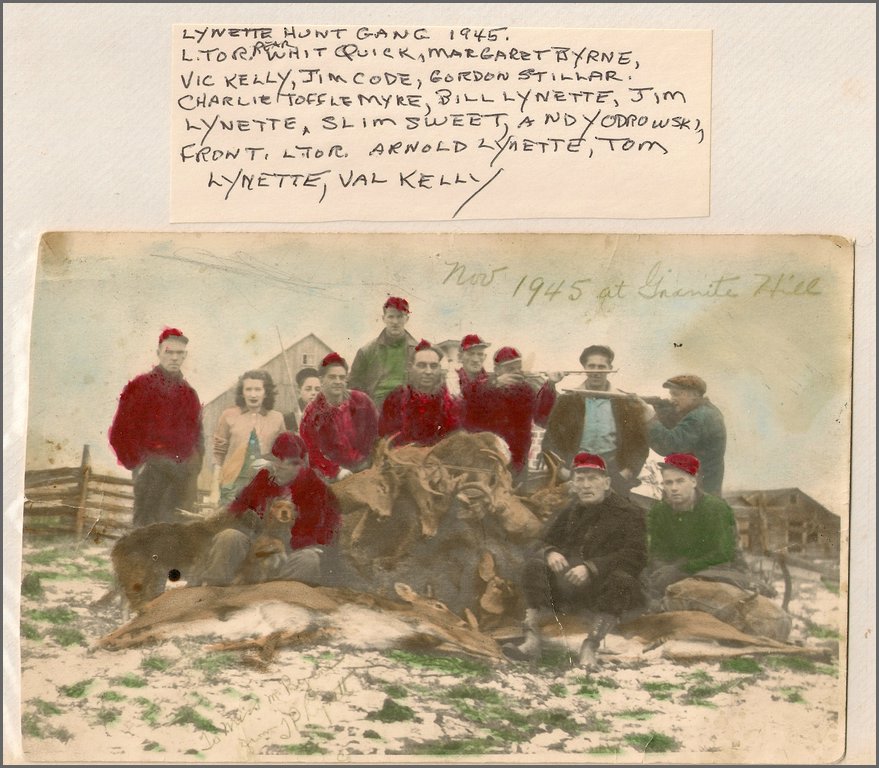 LYNETTE HUNT GANG 1945.
L.TOR. REAR WHIT QUICK, MARGARET BYRNE,
VIC KELLY, JIM CODE, GORDON STILLAR.
CHARLIE TOFFLEMYRE, BILL LYNETTE, JIM
LYNETTE, SLIM SWEET, ANDY ODROWSKI,
FRONT. L.TOR. ARNOLD LYNETTE, TOM
LYNETTE, VAL KELLY
Nov 1945 at Granite Hill